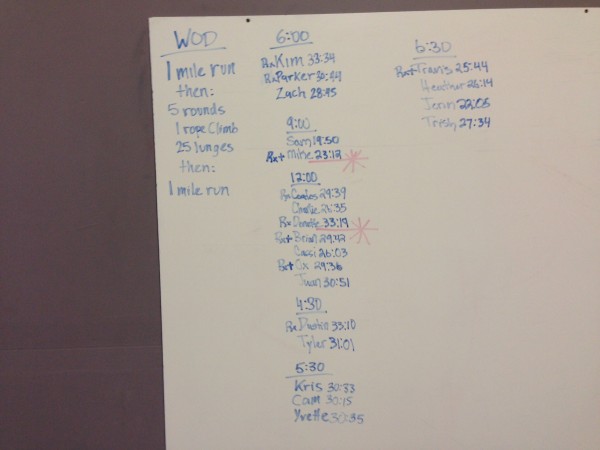 WOD
1 mile run
then:
5 rounds
1 rope climb
25 lunges
then:
1 mile run
6:00
Rx Kim 33:34
Rx Parker 30:44
Zach 28:45
9:00
Sam 19:50
Rx+ Mike 23:12
12:00
Rx 29:39
Charlie 26:35
Rx 33:19
Rx+ Brian 29:42
Cassi 26:03
Rx+ Cx 29:36
Juan 30:51
4:30
Rx Dustin 33:10
Tyler 31:01
5:30
Kris 30:33
Cam 30:15
Yvette 30:35
6:30
Rx+ Travis 25:44
Heather 26:14
Jenn 22:06
Trish 27:34